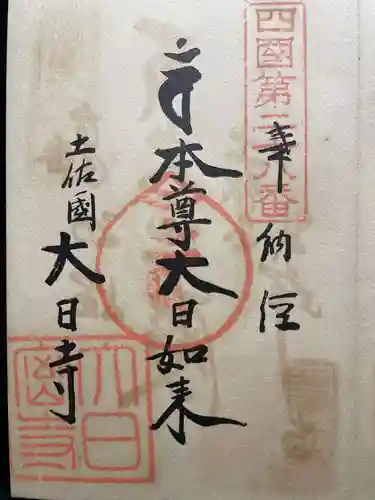 四國第二十八番
奉納経
本尊大日如来
土佐國
大日寺